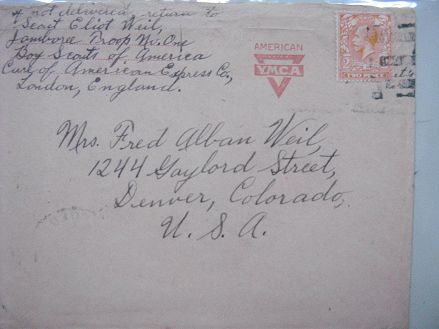 If not delivered, return to
Scout Eliot Weil,
Jamboree Troop No. One
Boy Scouts of America
Care of American Express Co.,
London, England.
AMERICAN
YMCA
Mrs. Fred Alban Weil,
1244 Gaylord Street,
Denver, Colorado,
U. S. A.